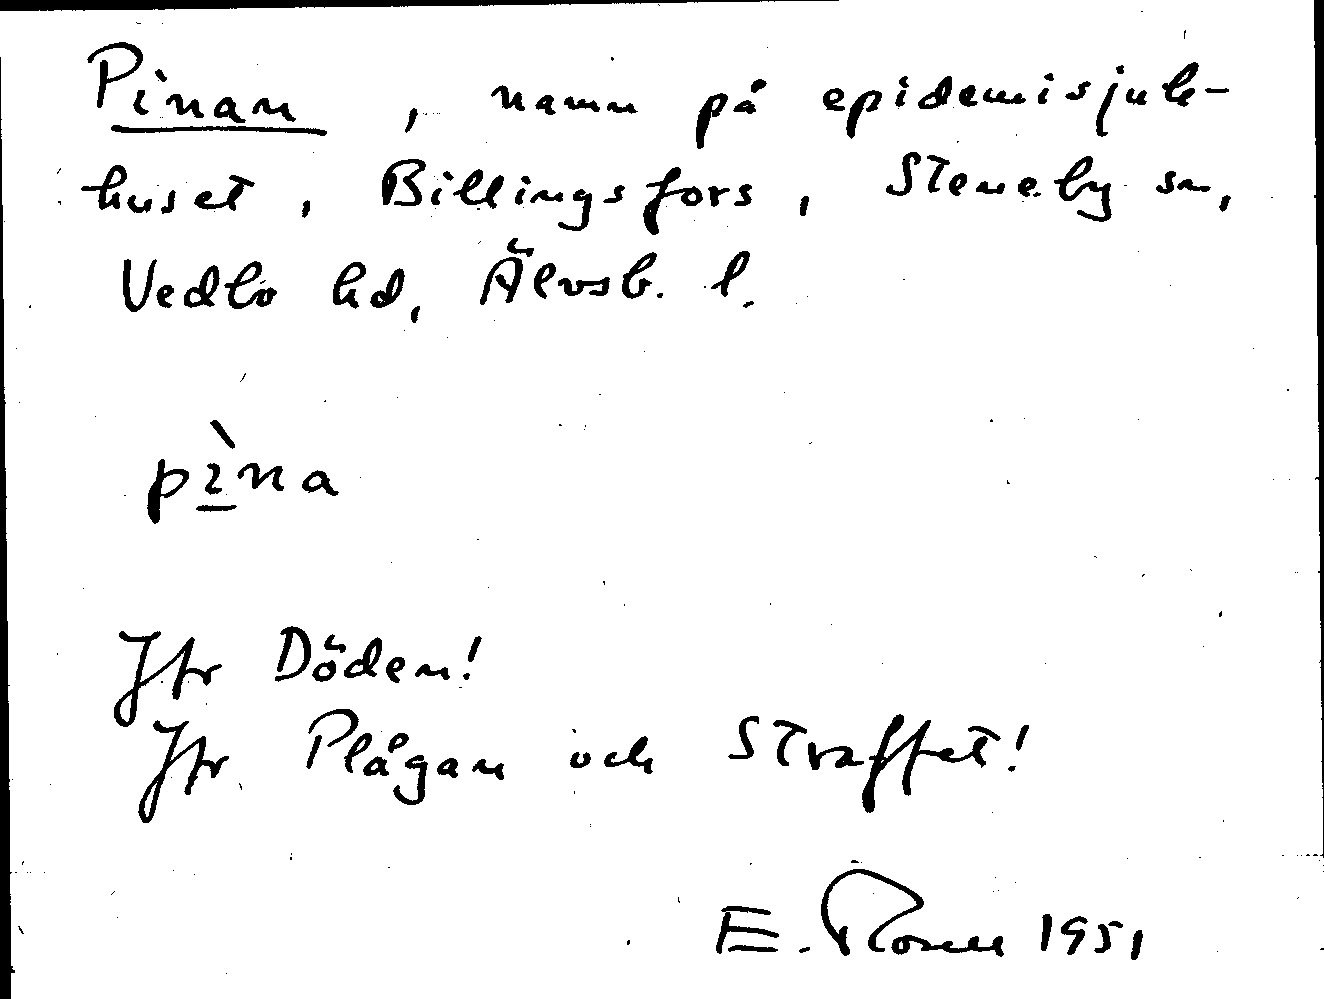 Pinan, namn på epidemisjuk-
huset, Billingsfors, Steneby sn,
Vedbo hd, Älvsb. l.
pì̲na
Jfr Döden!
Jfr Plågan och Straffet!
E. 1951